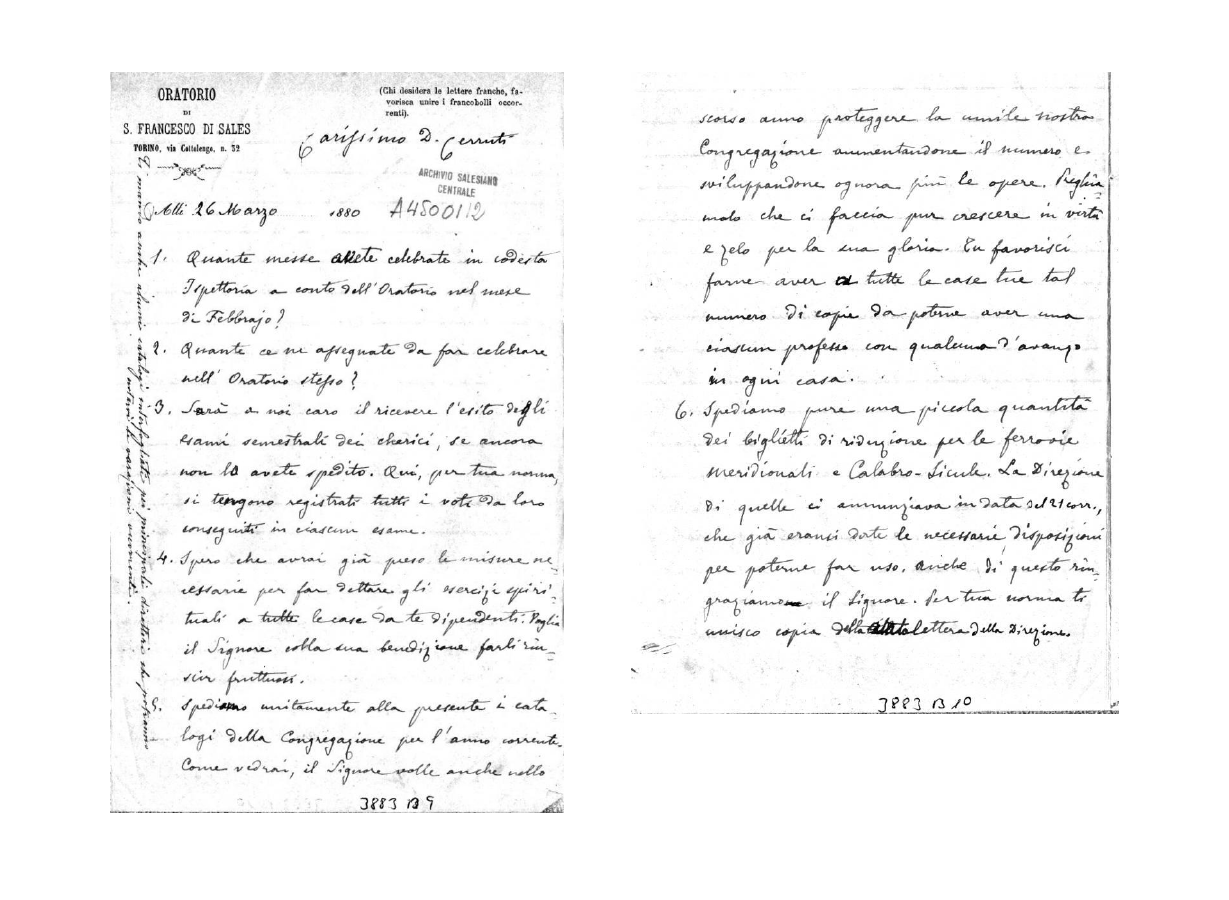 ORATORIO
DI
S. FRANCESCO DI SALES
TORINO, via Cottolengo, n. 32
(Chi desidera le lettere franche, fa-
vorisca unire i francobolli occor-
renti).
Carissimo D. Cerruti
ARCHIVIO SALESIANO
CENTRALE
A4500112
Alli 26 Marzo 1880
1. Quante messe avete celebrate in codesta
Ispettoria a conto dell'Oratorio nel mese
di Febbrajo?
2. Quante ce ne assegnate da far celebrare
nell' Oratorio stesso?
3. Sarà a noi caro il ricevere l'esito degli
esami semestrali dei cherici, se ancora
non lo avete spedito. Qui, per tua norma,
si tengono registrati tutti i voti da loro
conseguiti in ciascun esame.
4. Spero che avrai già preso le misure ne
cessarie per far dettare gli esercizi spiri-
tuali a tutte le case da te dipendenti. Voglia
il Signore colla sua benedizione farli riu=
scir fruttuosi.
5. Spediamo unitamente alla presente i cata
logi della Congregazione per l'anno corrente.
Come vedrai, il Signore volle anche nello
Ti manderò anche alcuni cataloghi pei principali direttori che potranno
3883 B 9
scorso anno proteggere la umile nostra
Congregazione aumentandone il numero e
sviluppandone ognora più le opere. Preghia
molo che ci faccia pur crescere in virtù
e zelo per la sua gloria. Tu favorisci
farne aver a tutte le case tue tal
numero di copie da poterne aver una
ciascun professo con qualcuna d'avanzo
in ogni casa.
6. Spediamo pure una piccola quantità
dei biglietti di riduzione per le ferrovie
meridionali e Calabro-Sicule. La Direzione
di quelle ci annunziava in data del 21 corr.,
che già eransi date le necessarie disposizioni
per poterne far uso. Anche di questo rin=
graziamo il Signore. Per tua norma ti
unisco copia della lettera della Direzione.
3883 B 10